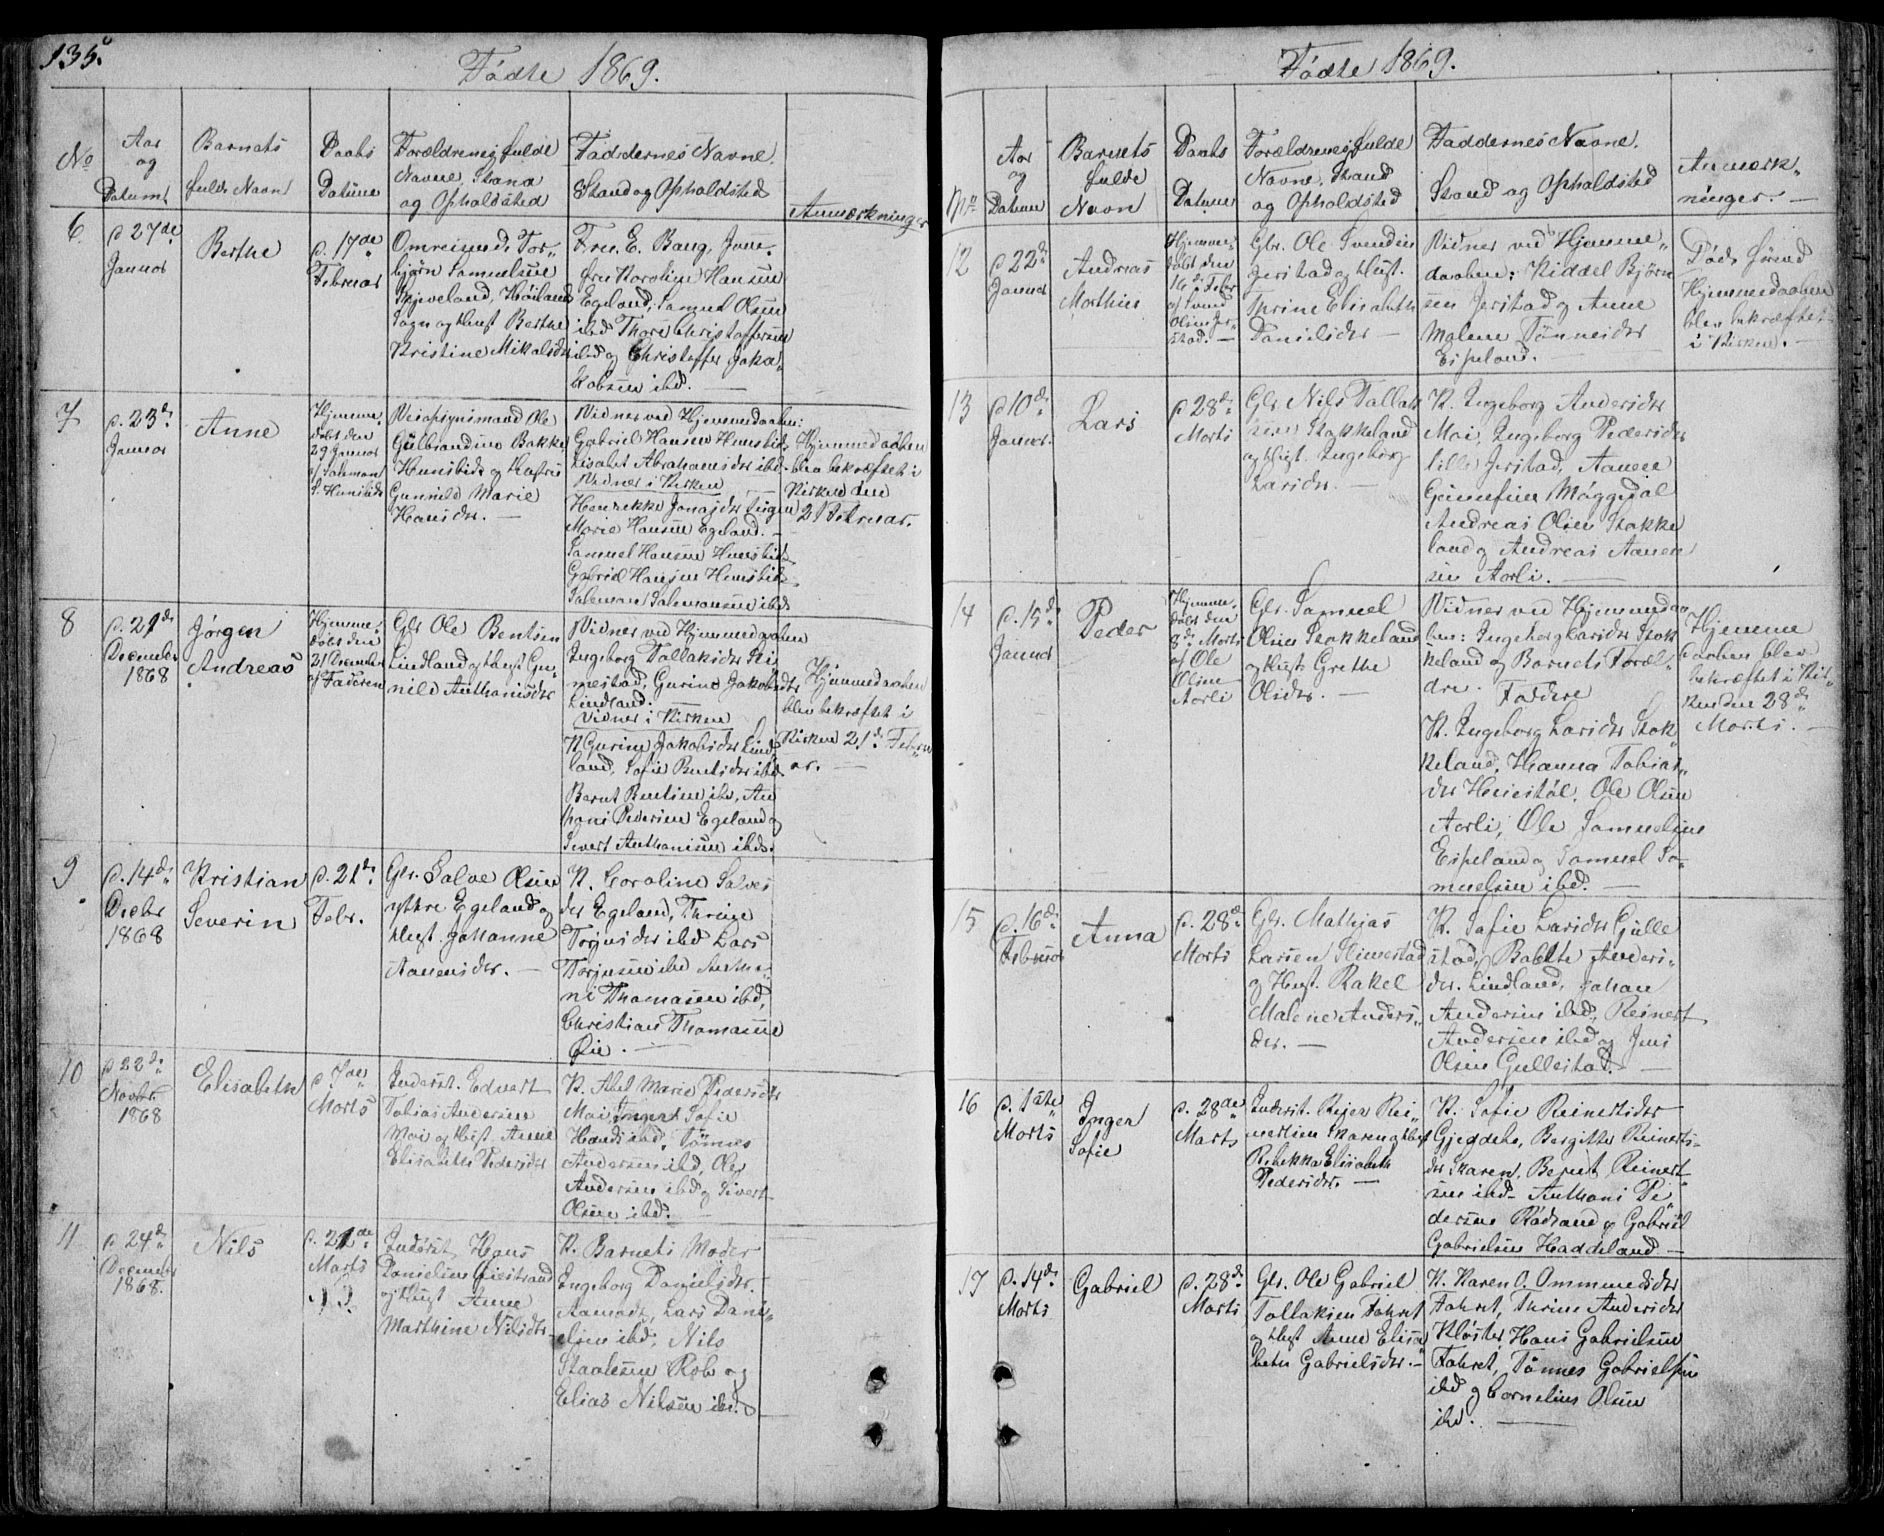 135.
Fødte 1869.
No
Aar
og
Datum
Barnets
fulde Navn
Daabs
Datum
Forældrenes fulde
Navne, Stand
og Opholdsted
Faddernes Navne.
Stand og Opholdsted
Anmærkninger
6.
d. 27de
Januar
Berthe
d. 17de
Februar
Omreisende Tor-
bjørn Samuelsen
Skjeveland, Høiland
Sogn og Hust Berthe
Kristine Mikalsdr
Fru. E. Bang, Jom-
fru Karoline Hansen
Egeland, Samuel Olsen
ibd Thore Christoffersen
ibd og Christoffer Jaka-
kobsen ibd. —
7
d. 23de
Januar
Anne
Hjemme-
døbt den
29 Januar
af Salomon
S. Humslid
Veiopsynsmand Ole
Gulbrandsen Bakke
Humslid og Hustru
Gunnild Marie
Hansdr. —
Vidner ved Hjemmedaaben:
Gabriel Hansen Humslid
Lisabet Abrahamsdr ibd.
Vidner i Kirken
Henrikke Jonasdr
Marie Hansen Egeland. —
Samuel Hansen Humslid
Gabriel Hansen Humslid
Salomon Salomonsen ibd
Hjemmedaaben
blev bekræftet i
Kirken den
21 Februar.
8
d. 21de
December
1868
Jørgen
Andreas
Hjemme-
døbt den
21 December
af Faderen
Gbr Ole Bentsen
Lindland og Hust Gu-
nild Anthonisdr
Vidner ved Hjemmedaaben
Ingeborg Tallaksdr Sli
mestad, Gurine Jakobsdr
Lindland.
Vidner i Kirken
K Gurine Jakobsdr Lind-
land, Sofie Bentsdr ibd
Bernt Bentsen ibd, An
thoni Pedersen Egeland og
Sivert Anthonisen ibd.
Hjemmedaaben
blev bekræftet i
Kirken 21de Febru
ar. —
9
d. 14de
Decbr
1868
Kristian
Severin
d. 21de
Febr.
Gbr. Salve Olsen
ythre Egeland og
Hust. Johanne
Aanensdr. —
K. Caroline Salves
dr Egeland, Thrine
Torjusdr ibd Lars
Torjusen ibd Antho-
ni Thomasen ibd,
Christian Thomasen
Øie. —
10
d 22de
Novbr.
1868
Elisabeth
d 7de
Marts
Inderst. Edvart
Tobias Andersen
Moi og Hust Anne
Elisabeth Pedersdr
K. Abel Marie Pedersdr
Moi, Inger Sofie
Hansdr ibd, Tønnes
Andersen ibd, Ole
Andersen ibd og Sivert
Olsen ibd. —
11
d 24de
December
1868.
Nils
d. 21de
Marts
Inderst Hans
Danielsen
og Hust Anne
Marthine Nilsdr —
K. Barnets Moder
Engeborg Danielsdr
Aamodt, Lars Dani-
elsen ibd, Nils
Staalesen Rob og
Elias Nilsen ibd. —
Fødte 1869.
No
Aar
og
Datum
Barnets
fulde
Navn
Daabs
Datum
Forældrenes fulde
Navne, Stand
og Opholdsted
Faddernes Navne.
Stand og Opholdsted
Anmærk-
ninger. —
12
d 22de
Januar
Andreas
Mathias
Hjemme-
døbt den
16de Febr
af Svend
Olsen Jer-
stad. —
Gbr. Ole Svendsen
Jerstad og Hust.
Thrine Elisabeth
Danielsdr —
Vidner ved Hjemme-
daaben: Kiddel Bjørn
sen Jerstad og Anne
Malene Tønnesdr
Espeland. —
Døde førend
Hjemmedaaben
blev bekræftet
i Kirken. —
13
d 10de
Januar.
Lars
d 28de
Marts
Gbr Nils Tallak
sen Stokkeland
og Hust. Ingeborg
Larsdr. —
K. Ingeborg Andersdr
Moi, Ingeborg Pedersdr
lille Jerstad, Aanen
Gunnufsen Møgedal
Andreas Olsen Stokke
land og Andreas Aanen
sen Aarli. —
14
d. 15de
Januar
Peder
Hjemme-
døbt den
8de Marts
af Ole
Olsen
Aarli
Gbr. Samuel
Olsen Stokkeland
og Hust Grethe
Olsdr. —
Vidner ved Hjemmedaa
ben: Ingeborg Larsdr Stok
keland og Barnets Foræl-
dre. Faddere
K. Ingeborg Larsdr Stok
keland, Hanna Tobias-
dr Heiestøl, Ole Olsen
Aarli, Ole Samuelsen
Espeland og Samuel Sa-
muelsen ibd. —
Hjemme
daaben blev
bekræftet i Kir-
ken den 28de
Marts. —
15
d. 16de
Februar
Anna
d. 28de
Marts
Gbr. Mathias
Larsen Slimestad
og Hust. Rakel
Malene Anders-
dr. —
K. Sofie Larsdr Gulle
stad, Bolette Anders-
dr. Lindland, Johan
Andersen ibd, Reinert
Andersen ibd og Jens
Olsen Gullestad. —
16
d. 1ste
Marts
Inger
Sofie
d. 28de
Marts
Inderst. Reier Rei-
nertsen Skaren og Hust
Rebekka Elisabeth
Pedersdr. —
K. Sofie Reinertsdr
Gjeddebo, Bergitte Reinerts-
dr Skaren, Bernt Reinert-
sen ibd - Anthoni Pe
dersen Rødsand og Gabriel
Gabrielsen Haddeland —
17
d. 14de
Marts
Gabriel
d. 28de
Marts
Gbr. Ole Gabriel
Tallaksen Fahret
og Hust Anne Elisa
beth Gabrielsdr. —
K. Karen O. Ommundsdr
Fahret, Thrine Andersdr
Kloster, Hans Gabrielsen
Fahret, Tønnes Gabrielsen
ibd og Cornelius Olsen
ibd. —